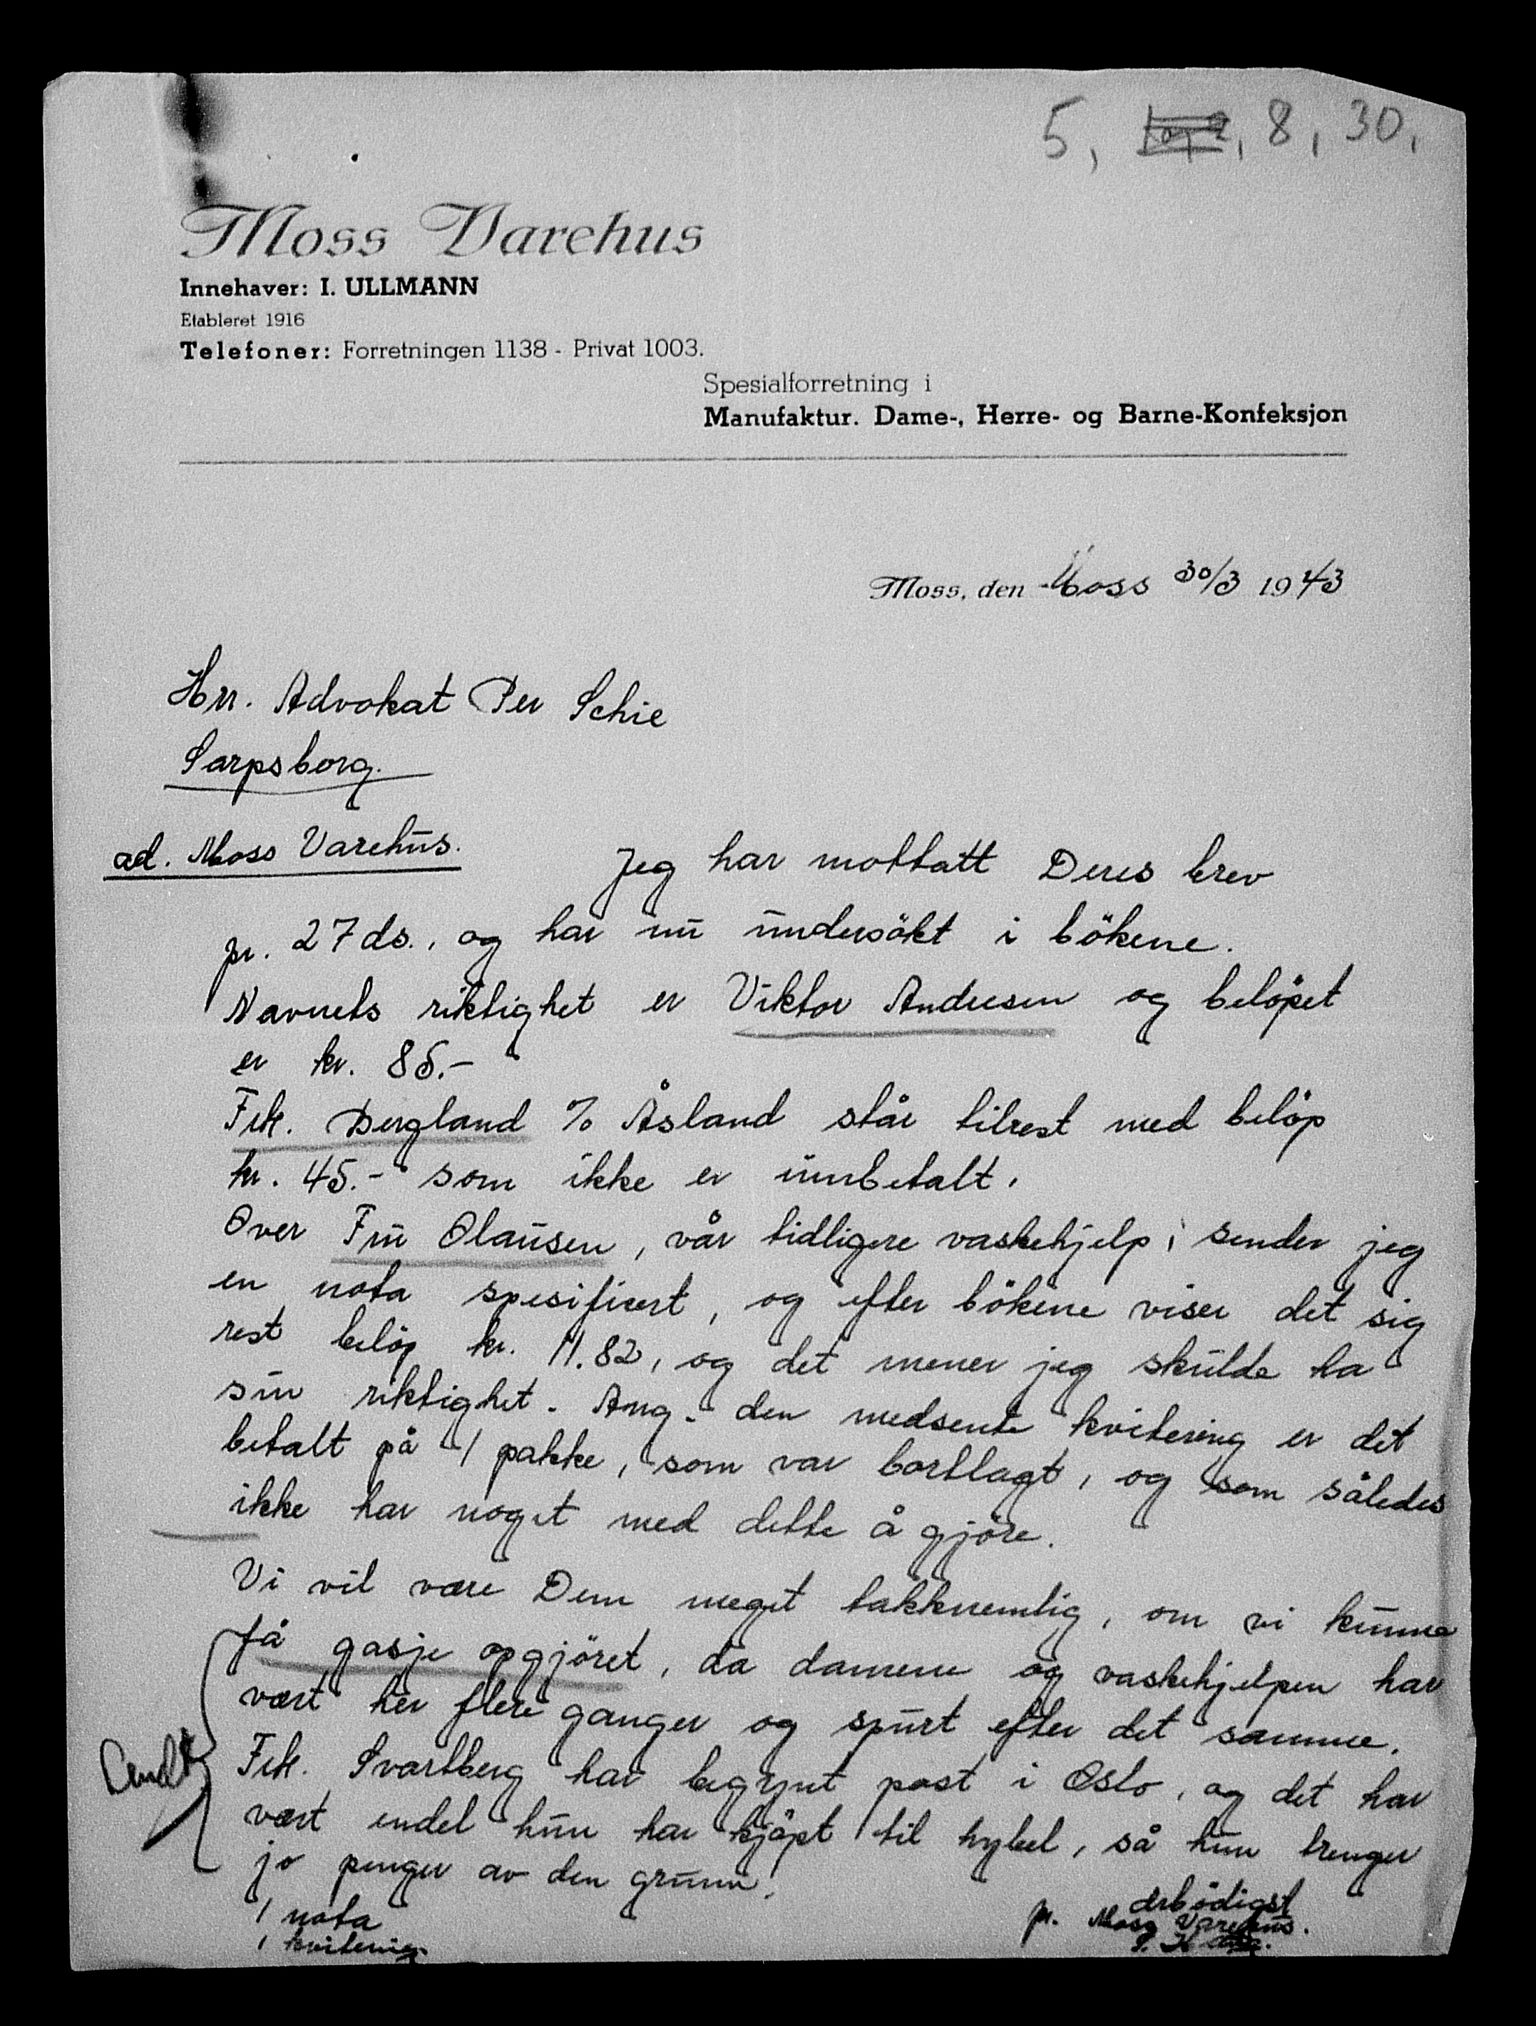 5, 8, 30,
Moss Varehus
Innehaver: I. ULLMANN
Etableret 1916
Telefoner: Forretningen 1138 - Privat 1003.
Spesialforretning i
Manufaktur. Dame-, Herre- og Barne-Konfeksjon
Moss, den Moss 30/3 1943
Hrr. Advokat Per Schie
Sarpsborg.
ad. Moss Varehus.
Jeg har mottatt Deres brev
pr. 27 ds., og har nu undersökt i bökene.
Navnets riktighet er Viktor Andresen og belöpet
er kr. 85.-
Frk. Bergland % Åsland står tilrest med belöp
kr. 45.- som ikke er innbetalt.
Over Fru Olausen, vår tidligere vaskehjelp, sender jeg
en nota spesifisert, og efter bökene viser det sig
rest belöp kr. 11.82, og det mener jeg skulde ha
sin riktighet. Ang. den medsente kvitering er det
betalt på 1 pakke, som var bortlagt, og som således
ikke har noget med dette å gjöre.
Vi vil være Dem meget takknemlig, om vi kunne
få gasje opgjöret, da damene og vaskehjelpen har
vært her flere ganger og spurt efter det samme.
Frk. Svartberg har begynt post i Oslo, og det har
vært endel hun har kjöpt til hybel, så hun trenger
jo penger av den grunn.
Sendt
1 nota
1 kvitering
ærbödigst
pr. Moss Varehus.